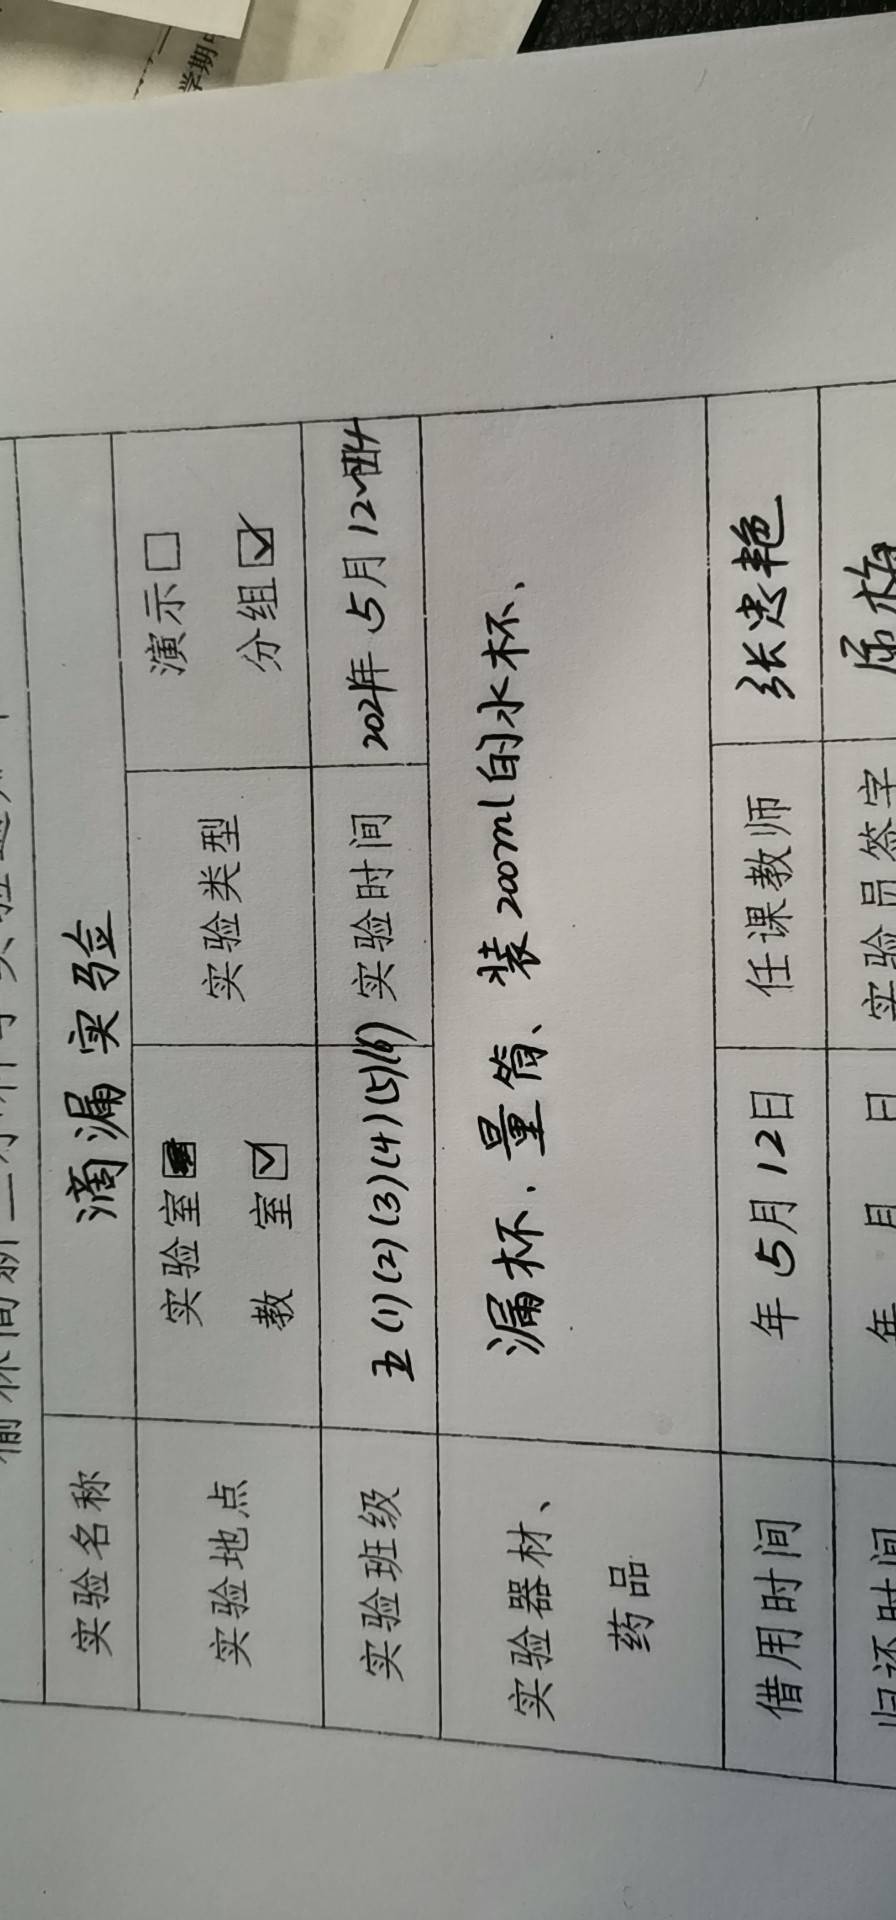 学期
实验名称 滴漏实验
实验地点 实验室 实验类型 演示□
教 室☑ 分组☑
实验班级 五(1)(2)(3)(4)(5)(6) 实验时间 2021年5月12
实验器材、 漏杯、量筒、装200ml的水杯、
药品
借用时间 年5月12日 任课教师 张忠艳
归还时间 年 月 日 实验员签字 屈梅